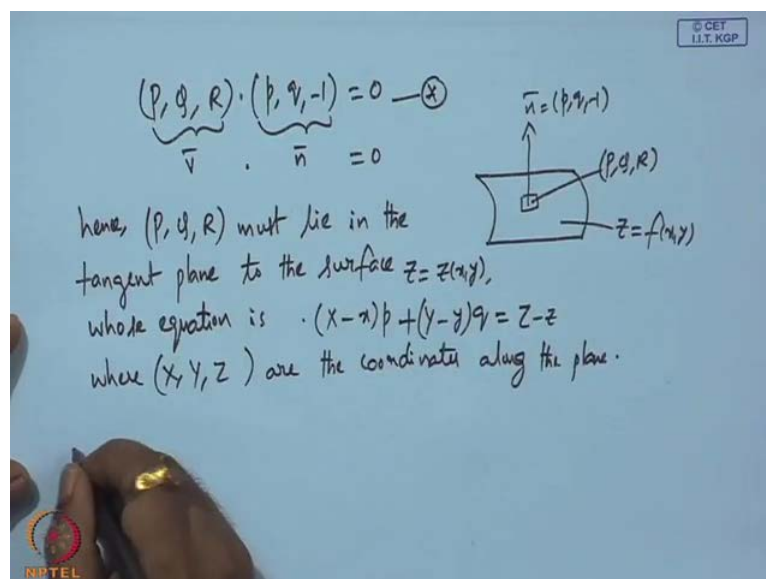 © CET
I.I.T. KGP
(P, Q, R) · (p, q, -1) = 0 — (*)
v̄ . n̄ = 0
n̄ = (p, q, -1)
(P, Q, R)
z = f(x, y)
hence, (P, Q, R) must lie in the
tangent plane to the surface z = z(x, y),
whose equation is . (X-x)p + (Y-y)q = Z-z
where (X, Y, Z) are the coordinates along the plane.
NPTEL